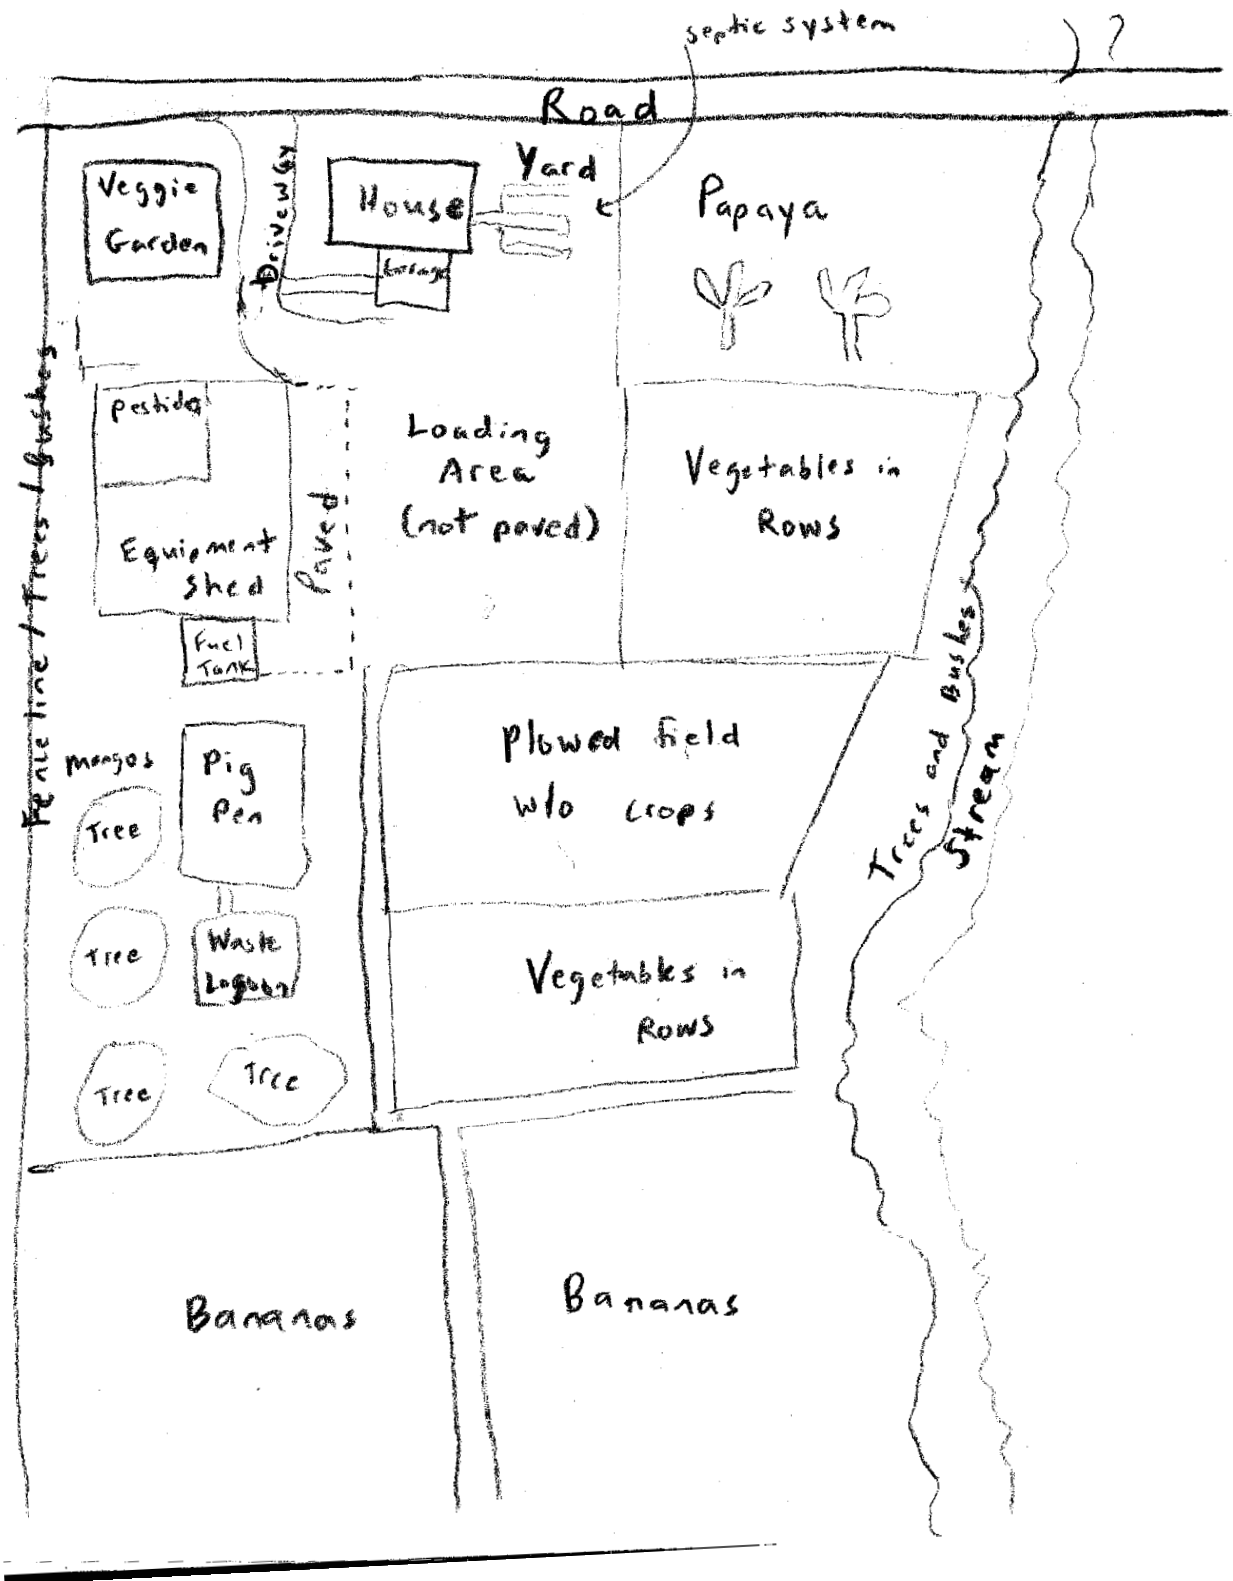 septic system
?
Road
Veggie
Garden
Driveway
House
Garage
Yard
Papaya
Fence line / Trees / Bushes
pesticide
Equipment
shed
Paved
Fuel
Tank
Loading
Area
(not paved)
Vegetables in
Rows
Trees and Bushes
Stream
mangos
Tree
Tree
Tree
Tree
Pig
Pen
Waste
Lagoon
Plowed field
w/o crops
Vegetables in
Rows
Bananas
Bananas